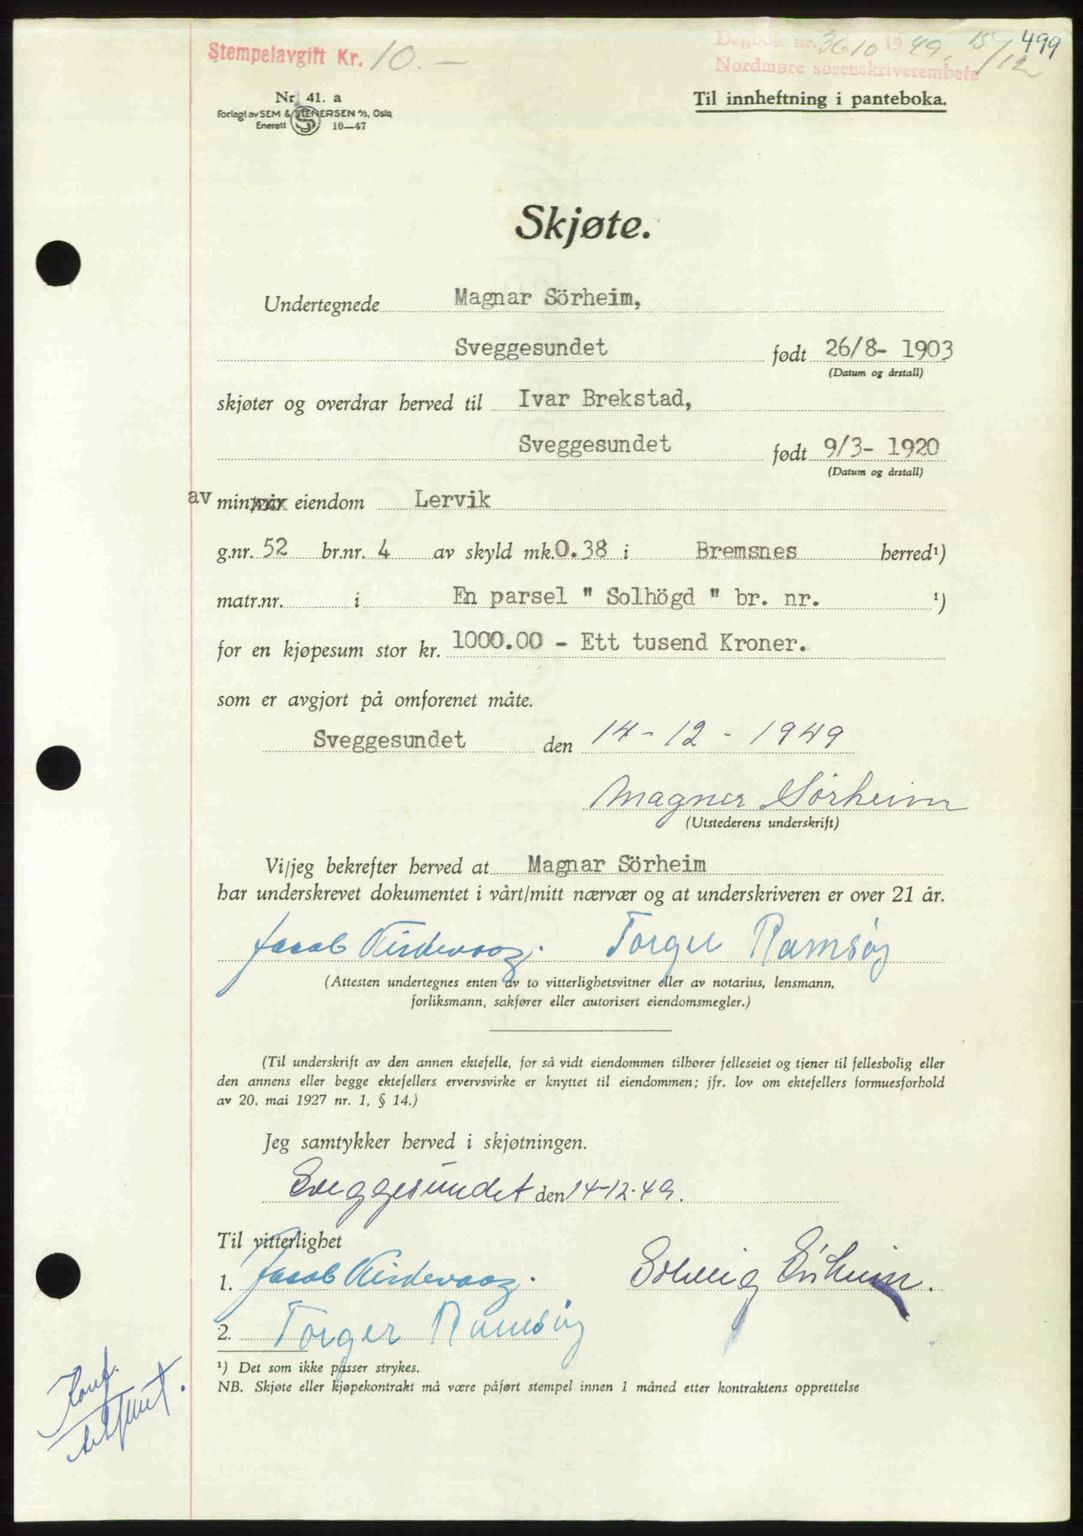 Stempelavgift Kr. 10.—
Dagbok nr. 3610 1949. 15/12 499
Nordmøre sorenskriverembete
Nr. 41. a
Forlagt av SEM & STENERSEN A/S, Oslo
Enerett S 10—47
Til innheftning i panteboka.
Skjøte.
Undertegnede Magnar Sörheim,
Sveggesundet født 26/8- 1903
(Datum og årstall)
skjøter og overdrar herved til Ivar Brekstad,
Sveggesundet født 9/3- 1920
(Datum og årstall)
av min/ eiendom Lervik
g.nr. 52 br.nr. 4 av skyld mk. 0.38 i Bremsnes herred¹)
matr.nr. i En parsel " Solhögd " br. nr. ¹)
for en kjøpesum stor kr. 1000.00 - Ett tusend Kroner.
som er avgjort på omforenet måte.
Sveggesundet den 14-12-1949
Magnar Sørheim
(Utstederens underskrift)
Vi/jeg bekrefter herved at Magnar Sörheim
har underskrevet dokumentet i vårt/mitt nærvær og at underskriveren er over 21 år.
Jacob Torger Ramsøy
(Attesten undertegnes enten av to vitterlighetsvitner eller av notarius, lensmann,
forliksmann, sakfører eller autorisert eiendomsmegler.)
(Til underskrift av den annen ektefelle, for så vidt eiendommen tilhører felleseiet og tjener til fellesbolig eller
den annens eller begge ektefellers ervervsvirke er knyttet til eiendommen; jfr. lov om ektefellers formuesforhold
av 20. mai 1927 nr. 1, § 14.)
Jeg samtykker herved i skjøtningen.
Sveggesundet den 14-12-49.
Til vitterlighet
1. Jacob Solveig Sørheim.
2. Torger Ramsøy
¹) Det som ikke passer strykes.
NB. Skjøte eller kjøpekontrakt må være påført stempel innen 1 måned etter kontraktens opprettelse
Konf.